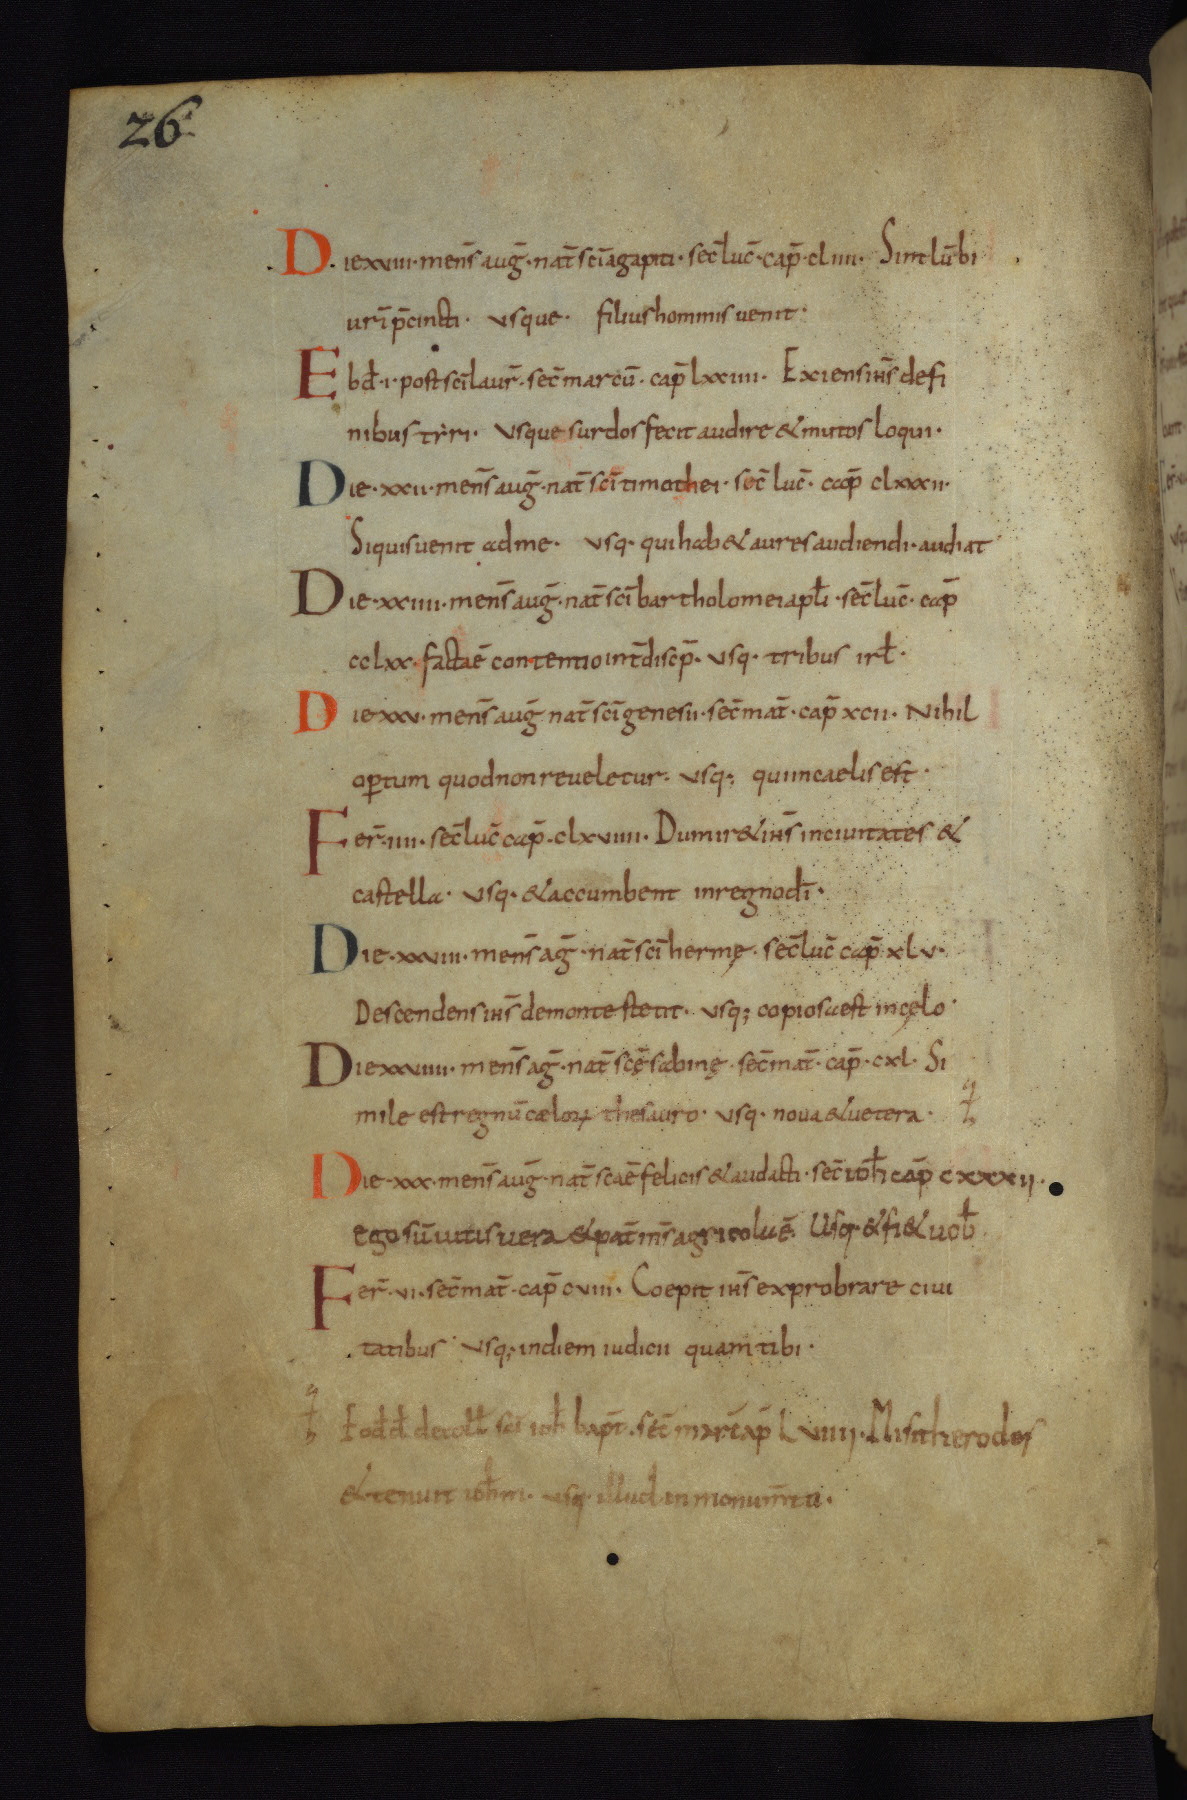 26
Die xviii · mens̄ aug̅ · nat̄ sc̄i agapiti · sec̄ luc̄ · cap̄ · cliiii · Sint lūbi
ur̄i p̄cincti · usque · filius hominis venit ·
Ebd̄ · i · post sc̄i laur̄ · sec̄ marcū · cap̄ lxxiiii · Exiens ih̄s de fi
nibus tyri · usque surdos fecit audire & mutos loqui ·
Die · xxii · mens̄ aug̅ · nat̄ sc̄i timothei · sec̄ luc̄ · cap̄ clxxxii ·
Si quis venit ad me · usq · qui hab& aures audiendi · audiat
Die · xxiiii · mens̄ aug̅ · nat̄ sc̄i bartholomei apl̄i · sec̄ luc̄ · cap̄
cclxx · facta ē contentio int̄ discp̄ · usq · tribus irl̄ ·
Die xxv · mens̄ aug̅ nat̄ sc̄i genesii · sec̄ mat̄ · cap̄ xcii · Nihil
optum quod non reveletur · usq; qui in caelis est ·
Fer̄ · iiii · sec̄ luc̄ cap̄ · clxviiii · Dum ir& ih̄s in civitates &
castella · usq · & accumbent in regno dī ·
Die · xxviii · mens̄ ag̅ · nat̄ sc̄i hermę · sec̄ luc̄ cap̄ xlv ·
Descendens ih̄s de monte stetit · usq; copiosa est in cęlo ·
Die xxviiii · mens̄ ag̅ · nat̄ sc̄ę sabinę · sec̄ mat̄ · cap̄ · cxl · Si
mile est regnū cæloꝝ thesauro · usq · nova & vetera ·
Die · xxx · mens̄ aug̅ · nat̄ scāe felicis & audacti · sec̄ ioh̄ cap̄ cxxxii ·
ego sū vitis vera & pat̄ m̄s agricola ē · Usq · & fi& vob̄
Fer̄ · vi · sec̄ mat̄ · cap̄ cviii · Coepit ih̄s exprobrare civi
tatibus usq; in diem iudicii quam tibi ·
decoll̄ sc̄i ioh̄ bapt̄ · sec̄ mar̄ cap̄ Lviiii · Misit herodes
& tenuit ioh̄m · usq · illud in monum̄to ·